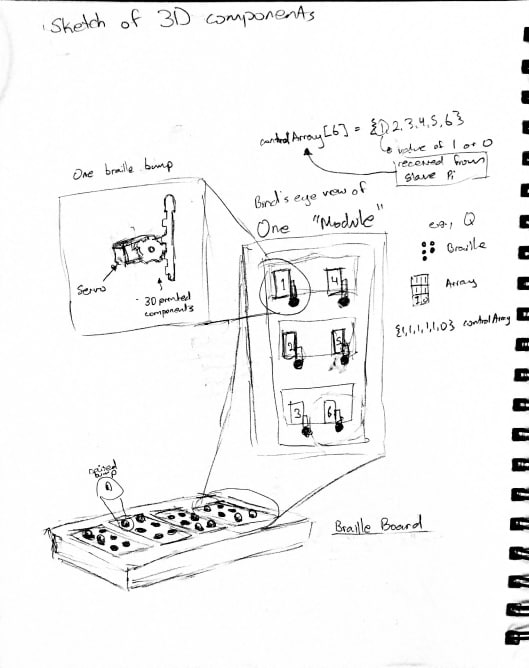 Sketch of 3D components
controlArray[6] = {1,2,3,4,5,6}
value of 1 or 0
received from
Slave Pi
One braille bump
Servo
3D printed
components
Bird's eye view of
One "Module"
1
4
2
5
3
6
e.g., Q
Braille
Array
{1,1,1,1,1,0} controlArray
raised
bump
Braille Board